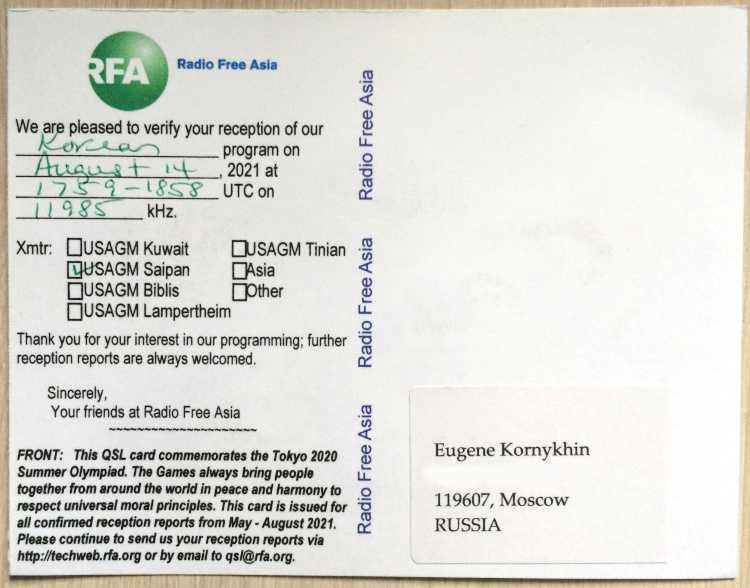 RFA Radio Free Asia
We are pleased to verify your reception of our
Korean program on
August 14, 2021 at
1759-1858 UTC on
11985 kHz.
Xmtr: USAGM Kuwait USAGM Tinian
USAGM Saipan Asia
USAGM Biblis Other
USAGM Lampertheim
Thank you for your interest in our programming; further
reception reports are always welcomed.
Sincerely,
Your friends at Radio Free Asia
~~~~~~~~~~~~~~~~~~~~
FRONT: This QSL card commemorates the Tokyo 2020
Summer Olympiad. The Games always bring people
together from around the world in peace and harmony to
respect universal moral principles. This card is issued for
all confirmed reception reports from May - August 2021.
Please continue to send us your reception reports via
http://techweb.rfa.org or by email to qsl@rfa.org.
Radio Free Asia
Radio Free Asia
Radio Free Asia
Eugene Kornykhin
119607, Moscow
RUSSIA